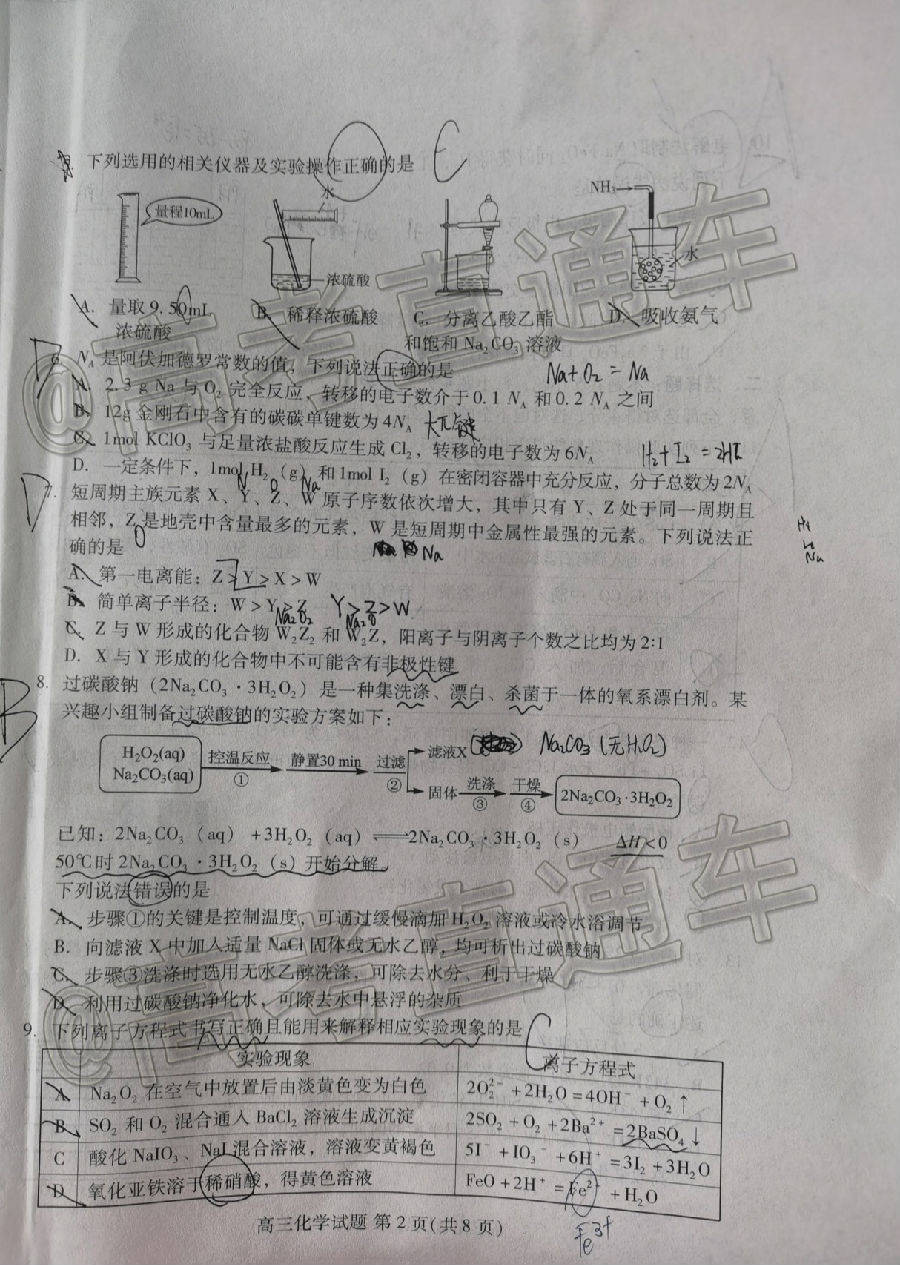 下列选用的相关仪器及实验操作正确的是
量程10mL
水
浓硫酸
NH₃
水
A. 量取9.50mL
浓硫酸
B. 稀释浓硫酸
C. 分离乙酸乙酯
和饱和Na₂CO₃溶液
D. 吸收氨气
6. Nᴀ是阿伏加德罗常数的值，下列说法正确的是
Na+O₂=Na
A. 2.3 g Na与O₂完全反应，转移的电子数介于0.1 Nᴀ和0.2 Nᴀ之间
B. 12g金刚石中含有的碳碳单键数为4Nᴀ
大π键
C. 1mol KClO₃与足量浓盐酸反应生成Cl₂，转移的电子数为6Nᴀ
H₂+I₂=2HI
D. 一定条件下，1mol H₂（g）和1mol I₂（g）在密闭容器中充分反应，分子总数为2Nᴀ
N O Na
D
7. 短周期主族元素X、Y、Z、W原子序数依次增大，其中只有Y、Z处于同一周期且
相邻，Z是地壳中含量最多的元素，W是短周期中金属性最强的元素。下列说法正
O
Na
确的是
A. 第一电离能：Z＞Y＞X＞W
B. 简单离子半径：W＞Y＞Z
Y＞Z＞W
Na₂O₂
Na₂O
C. Z与W形成的化合物W₂Z₂和W₂Z，阳离子与阴离子个数之比均为2:1
D. X与Y形成的化合物中不可能含有非极性键
B
8. 过碳酸钠（2Na₂CO₃·3H₂O₂）是一种集洗涤、漂白、杀菌于一体的氧系漂白剂。某
兴趣小组制备过碳酸钠的实验方案如下：
H₂O₂(aq)
Na₂CO₃(aq)
控温反应
①
静置30 min
过滤
②
滤液X
Na₂CO₃（无H₂O₂）
固体
洗涤
③
干燥
④
2Na₂CO₃·3H₂O₂
已知：2Na₂CO₃（aq）+3H₂O₂（aq）⇌2Na₂CO₃·3H₂O₂（s） ΔH<0
50℃时2Na₂CO₃·3H₂O₂（s）开始分解
下列说法错误的是
A. 步骤①的关键是控制温度，可通过缓慢滴加H₂O₂溶液或冷水浴调节
B. 向滤液X中加入适量NaCl固体或无水乙醇，均可析出过碳酸钠
C. 步骤③洗涤时选用无水乙醇洗涤，可除去水分、利于干燥
D. 利用过碳酸钠净化水，可除去水中悬浮的杂质
9. 下列离子方程式书写正确且能用来解释相应实验现象的是
C
实验现象 离子方程式
A Na₂O₂在空气中放置后由淡黄色变为白色 2O₂²⁻+2H₂O=4OH⁻+O₂↑
B SO₂和O₂混合通入BaCl₂溶液生成沉淀 2SO₂+O₂+2Ba²⁺=2BaSO₄↓
C 酸化NaIO₃、NaI混合溶液，溶液变黄褐色 5I⁻+IO₃⁻+6H⁺=3I₂+3H₂O
D 氧化亚铁溶于稀硝酸，得黄色溶液 FeO+2H⁺=Fe²⁺+H₂O
Fe³⁺
高三化学试题 第2页(共8页)
@高考直通车
@高考直通车